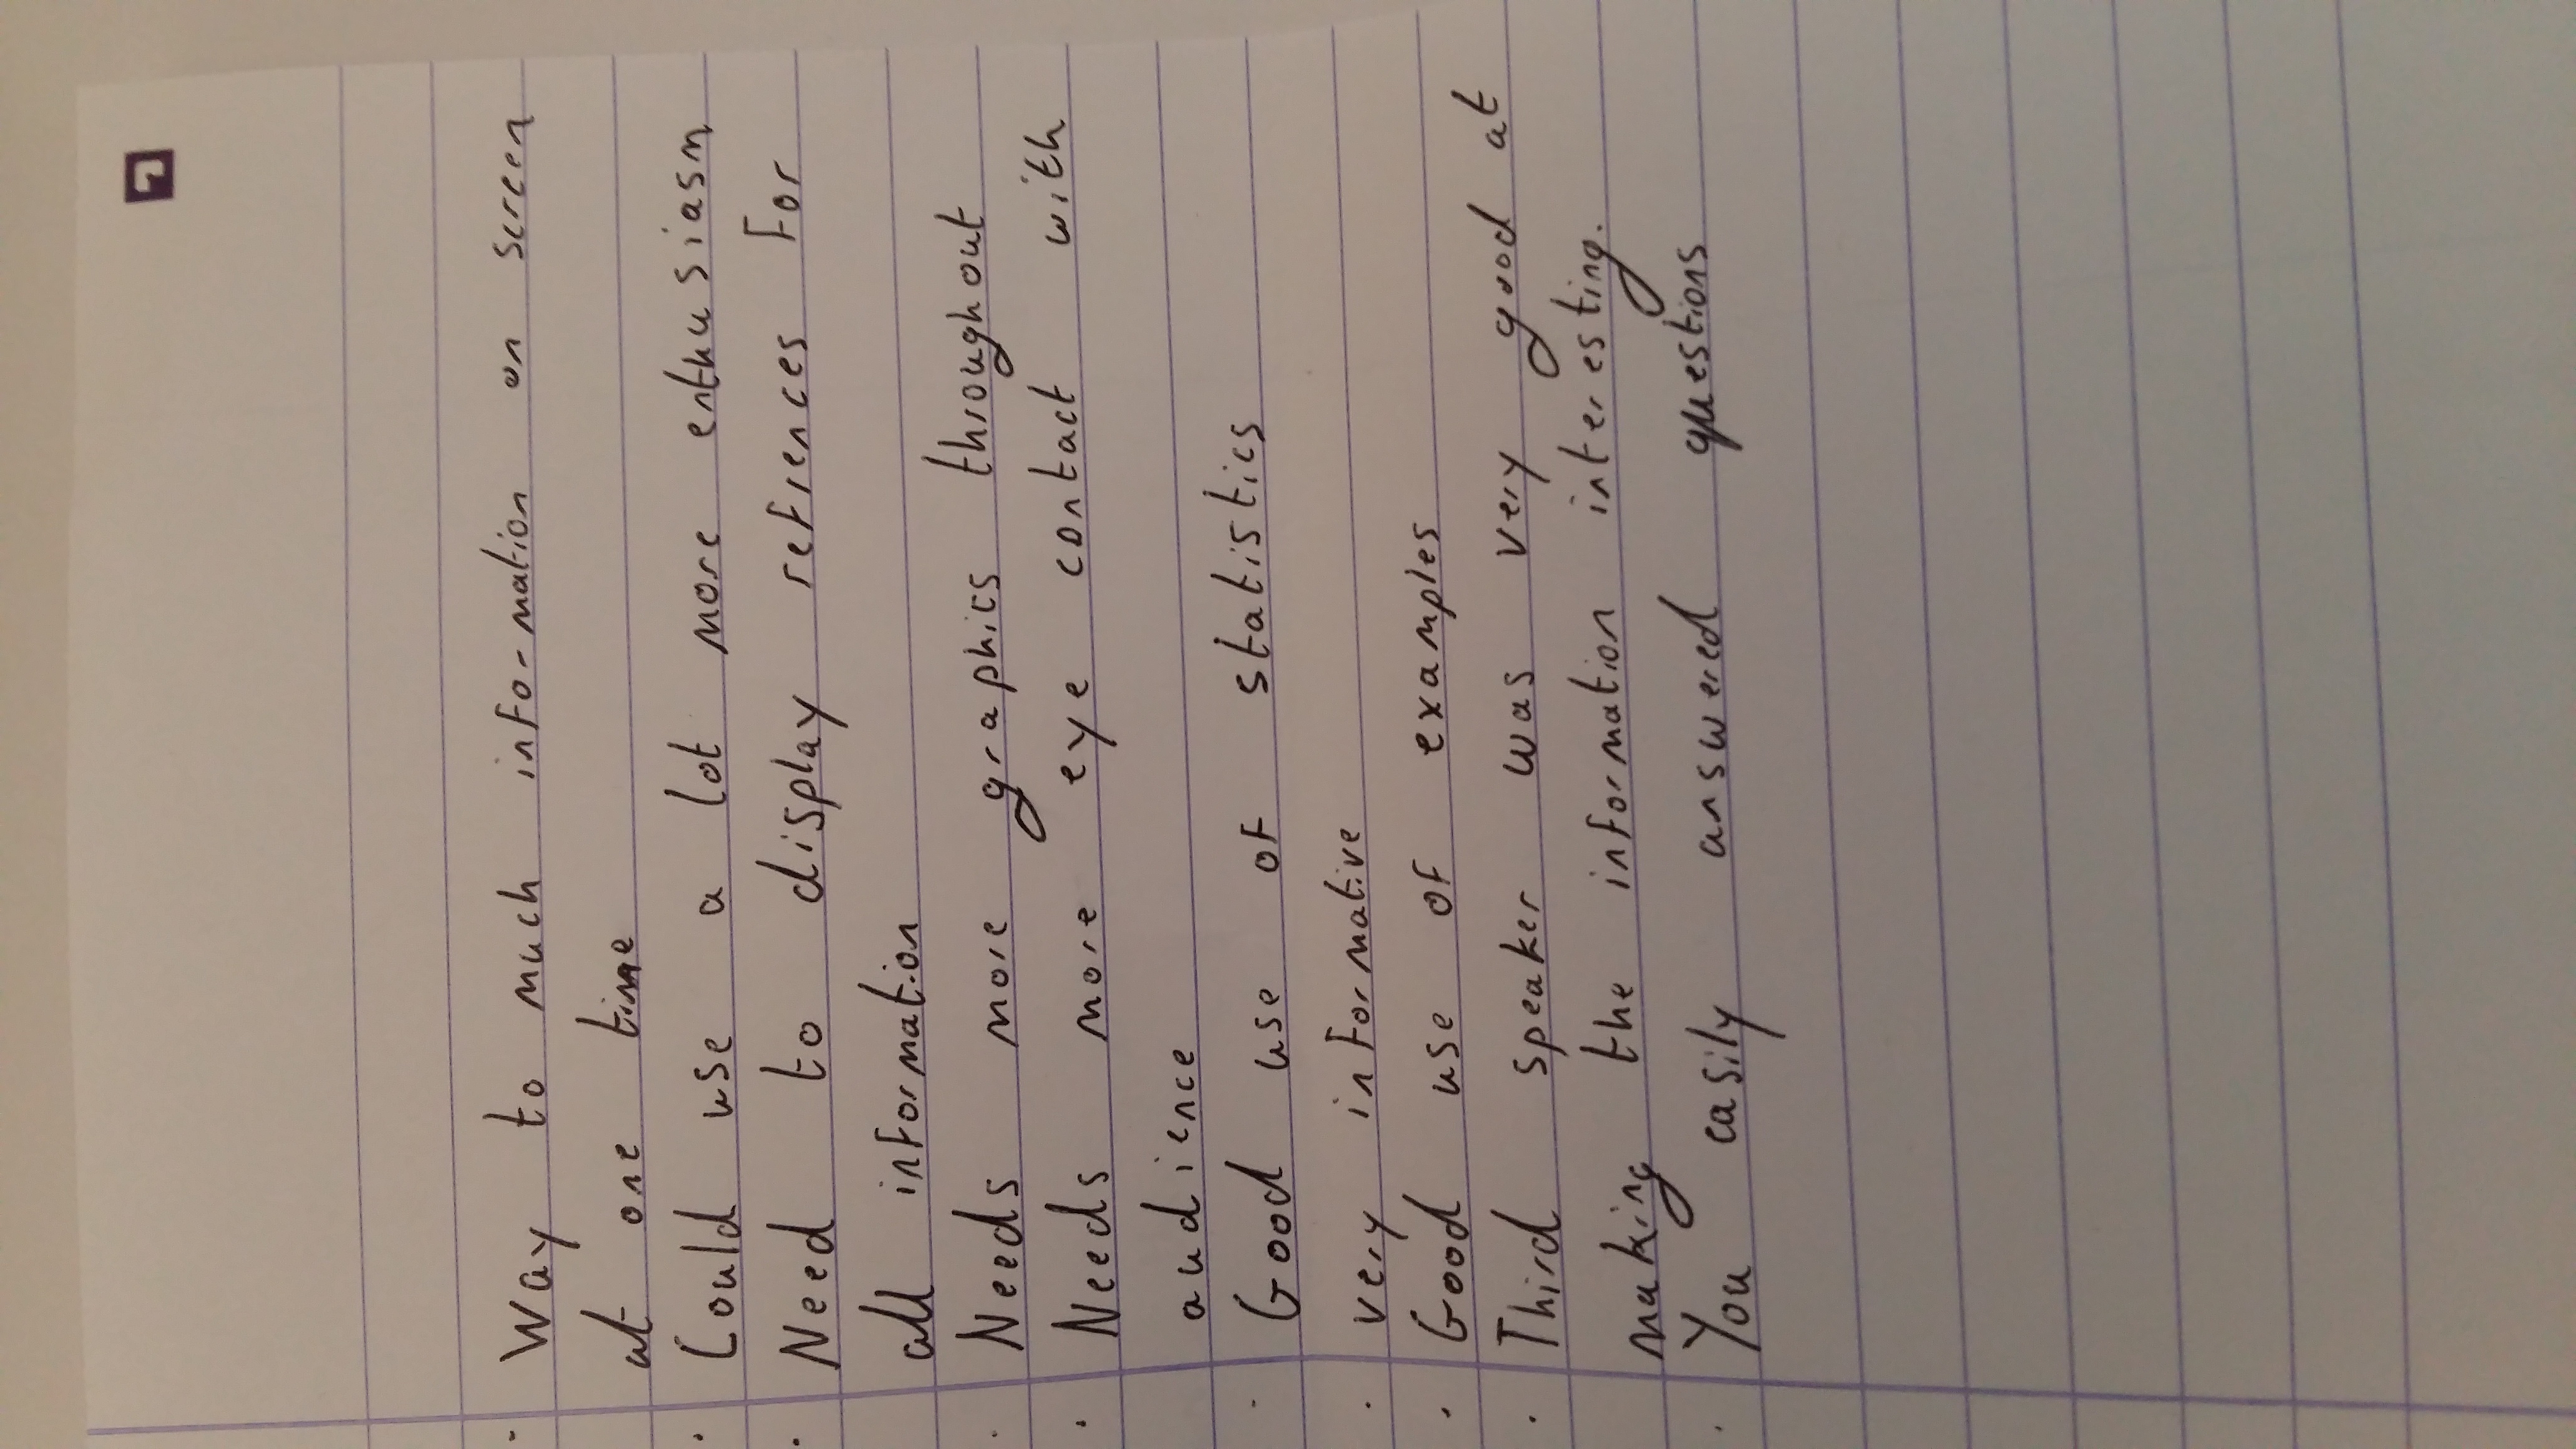 · Way to much information on screen
at one time
· Could use a lot more enthusiasm
· Need to display refrences for
all information
· Needs more graphics throughout
· Needs more eye contact with
audience
· Good use of statistics
· very informative
· Good use of examples
· Third speaker was very good at
making the information interesting.
· You easily answered questions